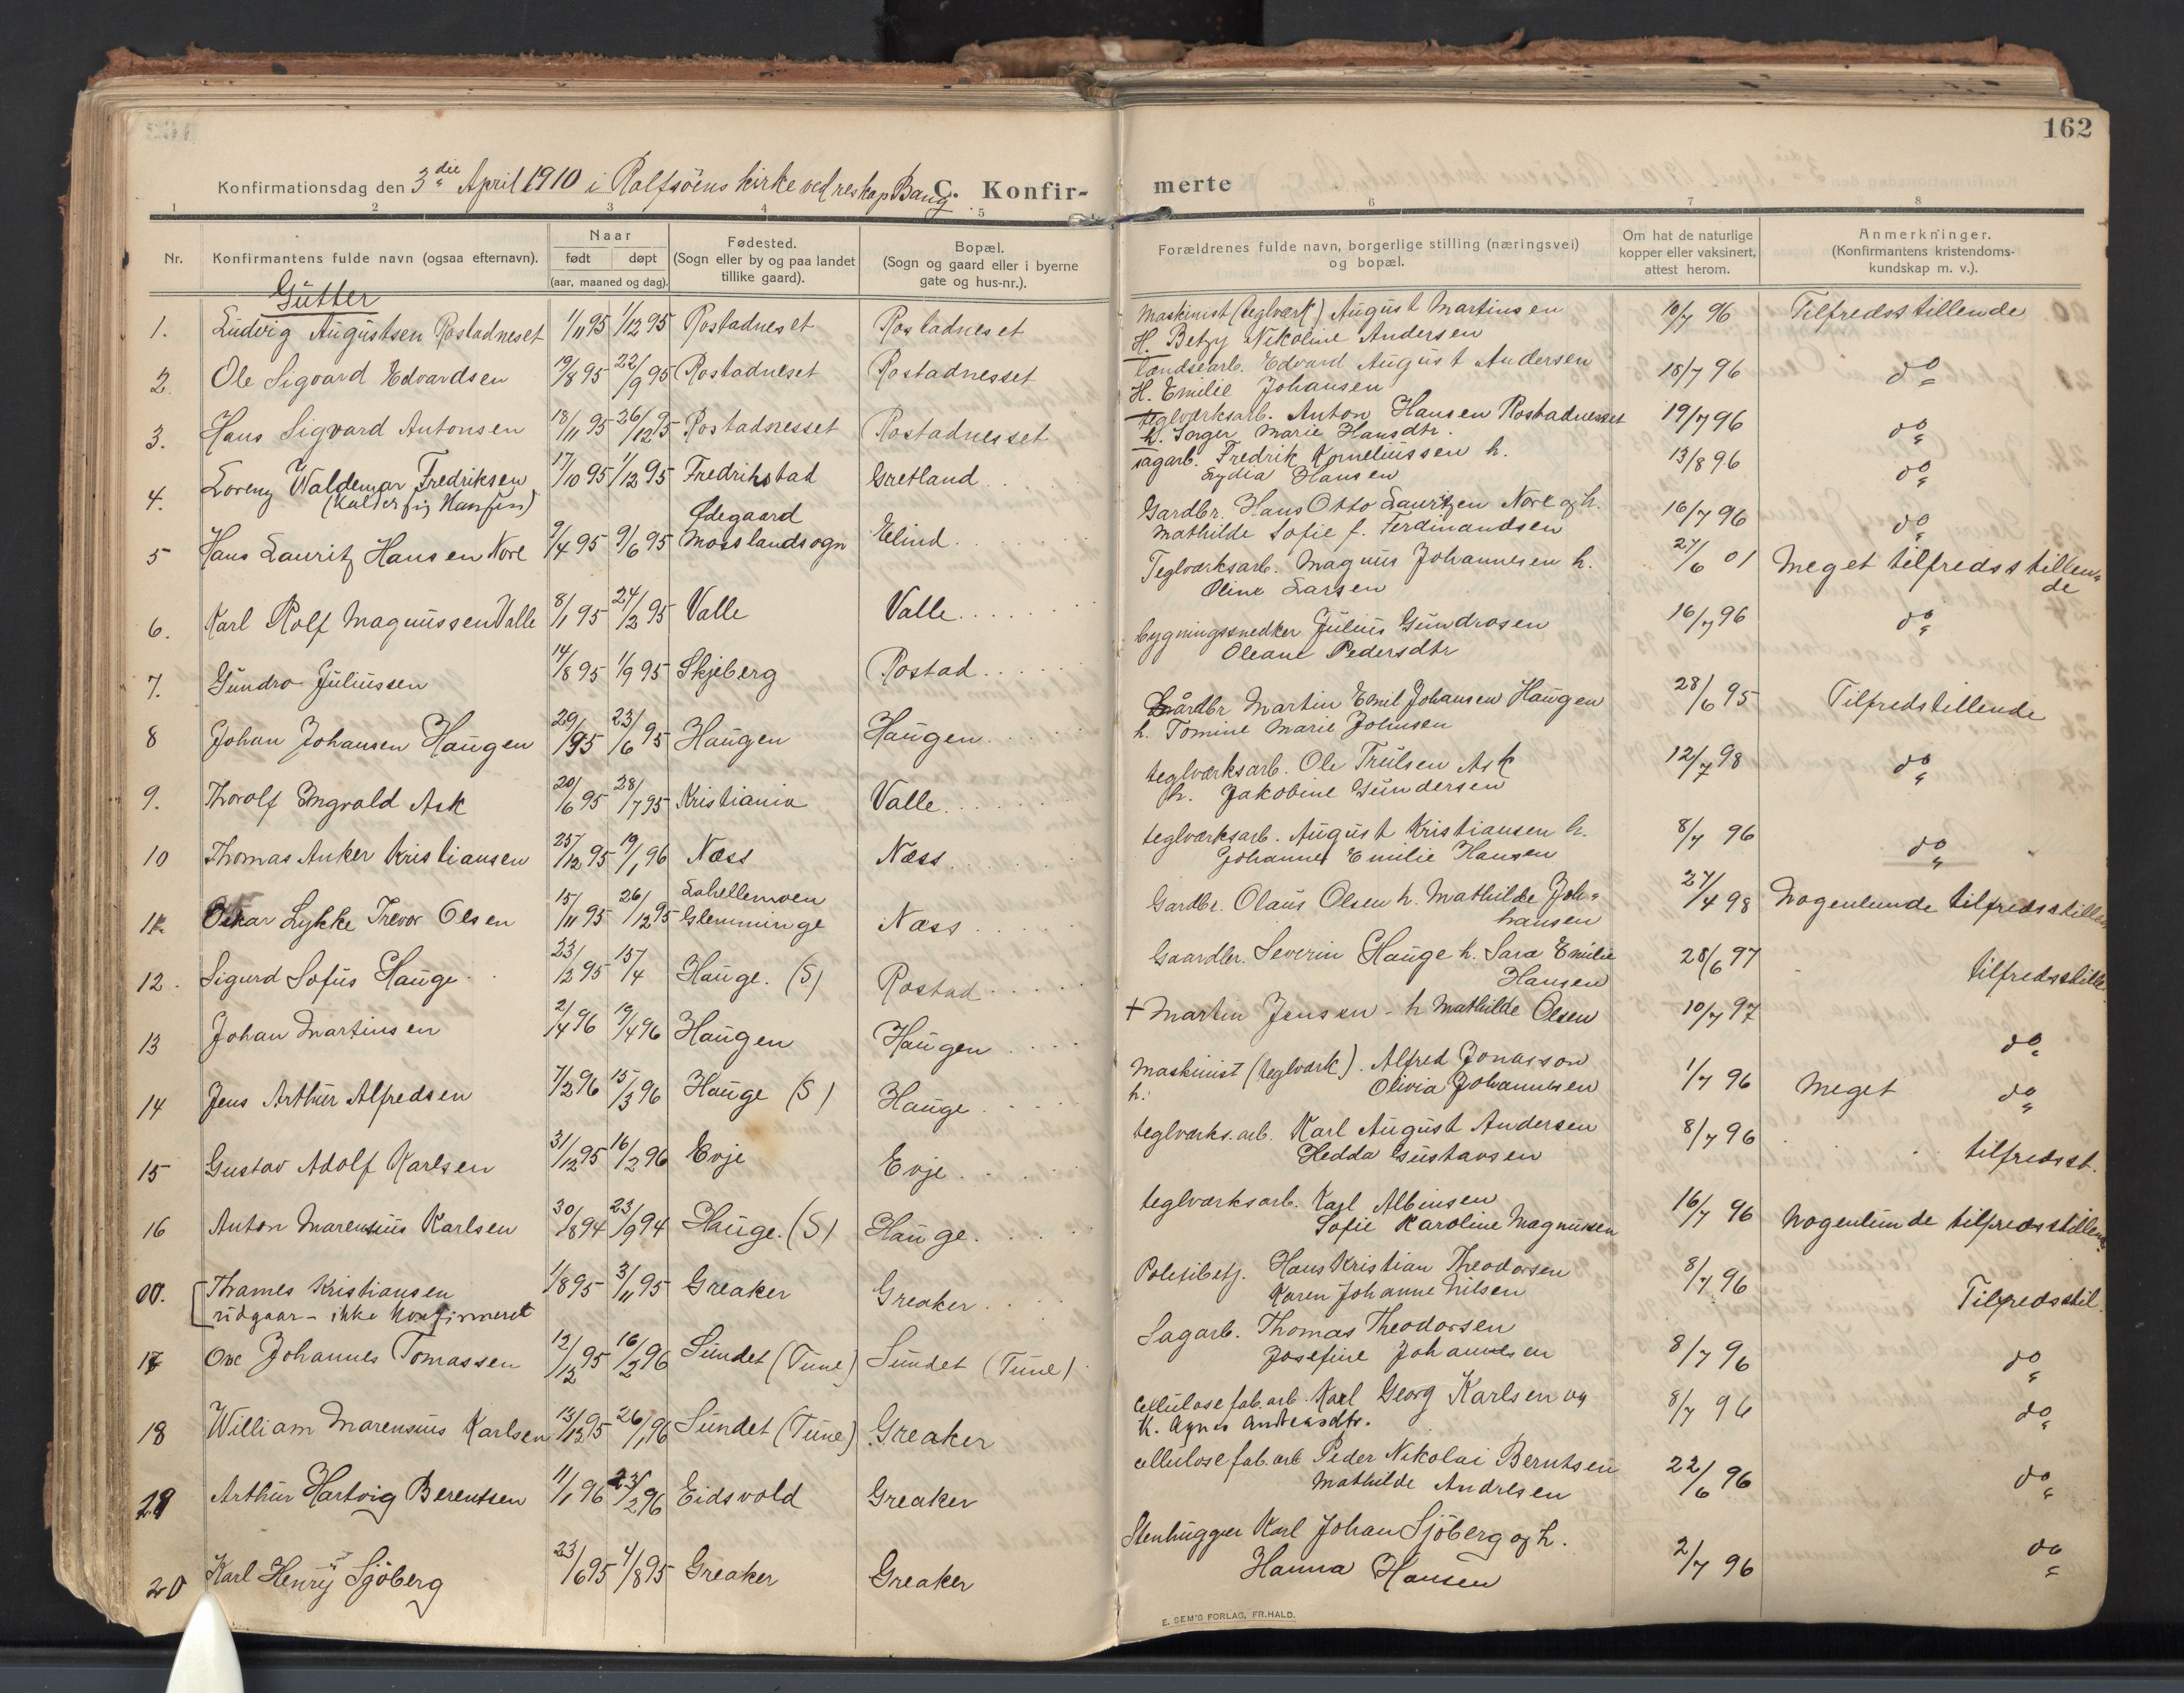 162
Konfirmationsdag den 3die April 1910 i Rolfsöens kirke ved res kap Bang. C. Konfir-
merte
1 2 3 4 5
6 7 8
Nr. Konfirmantens fulde navn (ogsaa efternavn). Naar født døpt (aar, maaned og dag). Fødested. (Sogn eller by og paa landet tillike gaard). Bopæl. (Sogn og gaard eller i byerne gate og hus-nr.).
Forældrenes fulde navn, borgerlige stilling (næringsvei) og bopæl. Om hat de naturlige kopper eller vaksinert, attest herom. Anmerkninger. (Konfirmantens kristendoms-kundskap m. v.).
Gutter
1. Ludvig Augustsen Rostadneset 1/11 95 1/12 95 Rostadneset Rostadneset
Maskinist (teglværk) August Martinsen 10/7 96 Tilfredsstillende
H. Betzy Nikoline Andersen
2. Ole Sigvard Edvardsen 19/8 95 22/9 95 Rostadneset Rostadnesset
Lændsearb. Edvard August Andersen 18/7 96 do
H. Emilie Johansen
3. Hans Sigvard Antonsen 18/11 95 26/12 95 Rostadnesset Rostadnesset
teglværksarb. Anton Hansen Rostadnesset 19/7 96 do
h. Inger Marie Hansdtr.
4. Lorenz Waldemar Fredriksen 17/10 95 1/12 95 Fredrikstad Gretland
(kalder sig Hansen)
sagarb. Fredrik Korneliussen h. 13/8 96 do
Lydia Hansen
5 Hans Lauritz Hansen Nore 9/4 95 9/6 95 Ødegaard Mosslandsogn Elind
Gardbr. Hans Otto Lauritzen Nore og h. 16/7 96 do
Mathilde Sofie f. Ferdinandsen
6. Karl Rolf Magnussen Valle 8/1 95 24/2 95 Valle Valle
Teglværksarb. Magnus Johannesen h. 27/6 01 Meget tilfredsstillen-
Oline Larsen de
7. Gundro Juliussen 14/8 95 1/9 95 Skjeberg Rostad
bygningssnedker Julius Gundrosen 16/7 96 do
Oleane Pedersdtr
8 Johan Johansen Haugen 29/ 95 23/6 95 Haugen Haugen
Gårdbr Martin Emil Johansen Haugen 28/6 95 Tilfredstillende
h. Tomine Marie Johnsen
9. Thorolf Ingvald Ask 20/6 95 28/7 95 Kristiania Valle
teglværksarb. Ole Trulsen Ask 12/7 98 do
h. Jakobine Gundersen
10 Thomas Anker Kristiansen 25/12 95 19/1 96 Næss Næss
teglværksarb. August Kristiansen h. 8/7 96 do
Johanne Emilie Hansen
11 Oskar Lykke Trevor Olsen 15/11 95 26/12 95 Lahellemoen Glemminge Næss
Gardbr. Olaus Olsen h. Mathilde Joh- 27/4 98 Nogenlunde tilfredsstillen
hansen
12. Sigurd Sofus Hauge 23/2 95 15/4 Hauge. (S) Rostad
Gaardbr. Severin Hauge h. Sara Emilie 28/6 97 tilfredsstille.
Hansen
13 Johan Martinsen 2/4 96 19/4 96 Haugen Haugen
+ Martin Jensen - h Mathilde Olsen 10/7 97 do
14 Jens Arthur Alfredsen 7/2 96 15/3 96 Hauge (S) Hauge
Maskinist (teglværk). Alfred Jonasson
h. Olivia Johannesen 1/7 96 Meget do
15 Gustav Adolf Karlsen 31/12 95 16/2 96 Evje Evje
teglværks.arb. Karl August Andersen 8/7 96 tilfredsst.
Hedda Gustavsen
16 Anton Marensius Karlsen 30/8 94 23/9 94 Hauge. (S) Hauge
teglværksarb. Karl Albinsen 16/7 96 Nogenlunde tilfredsstillen
Sofie Karoline Magnussen
00. Thames Kristiansen 1/8 95 3/11 95 Greaker Greaker
udgaar - ikke konfirmeret
Politibetj. Hans Kristian Theodorsen 8/7 96 Tilfredsstil.
Karen Johanne Nilsen
17 Ove Johannes Tomassen 12/12 95 16/2 96 Sundet (Tune) Sundet (Tune)
Sagarb. Thomas Theodorsen 8/7 96 do
Josefine Johannesen
18 William Marensius Karlsen 13/12 95 26/1 96 Sundet (Tune) Greaker
Cellulosefab.arb. Karl Georg Karlsen og 8/7 96 do
h. Agnes Andreasdtr.
19 Arthur Hartvig Berentsen 11/1 96 23/2 96 Eidsvold Greaker
cellulosefab.arb Peder Nikolai Berntsen 22/6 96 do
Mathilde Andresen
20 Karl Henry Sjöberg 23/6 95 4/8 95 Greaker Greaker
Stenhugger Karl Johan Sjöberg og h. 2/7 96 do
Hanna Hansen
E. SEM'S FORLAG, FR.HALD.